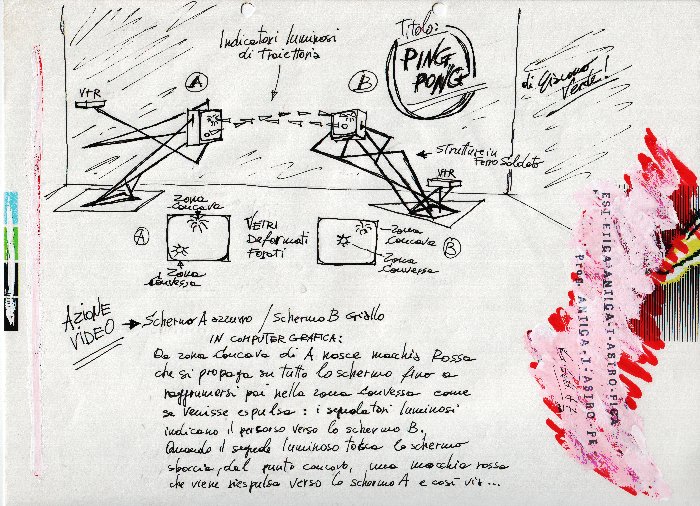 Titolo:
"PING
PONG"
di Giacomo
Verde!
Indicatori luminosi
di traiettoria
A
B
VTR
strutture in
Ferro Saldato
VTR
zona
concava
A
zona
convessa
VETRI
Deformati
Forati
zona
concava
zona
convessa
B
AZIONE
VIDEO
Schermo A azzurro / Schermo B Giallo
IN COMPUTER GRAFICA:
Da zona concava di A nasce macchia Rossa
che si propaga su tutto lo schermo fino a
raggrumarsi poi nella zona convessa come
se venisse espulsa: i segnalatori luminosi
indicano il percorso verso lo schermo B.
Quando il segnale luminoso tocca lo schermo
sboccia, dal punto concavo, una macchia rossa
che viene riespulsa verso lo schermo A e così via...
EST-ETICA-ANTICA-T-ASTRO-FICA
Prog. ANTICA-T-ASTRO FE